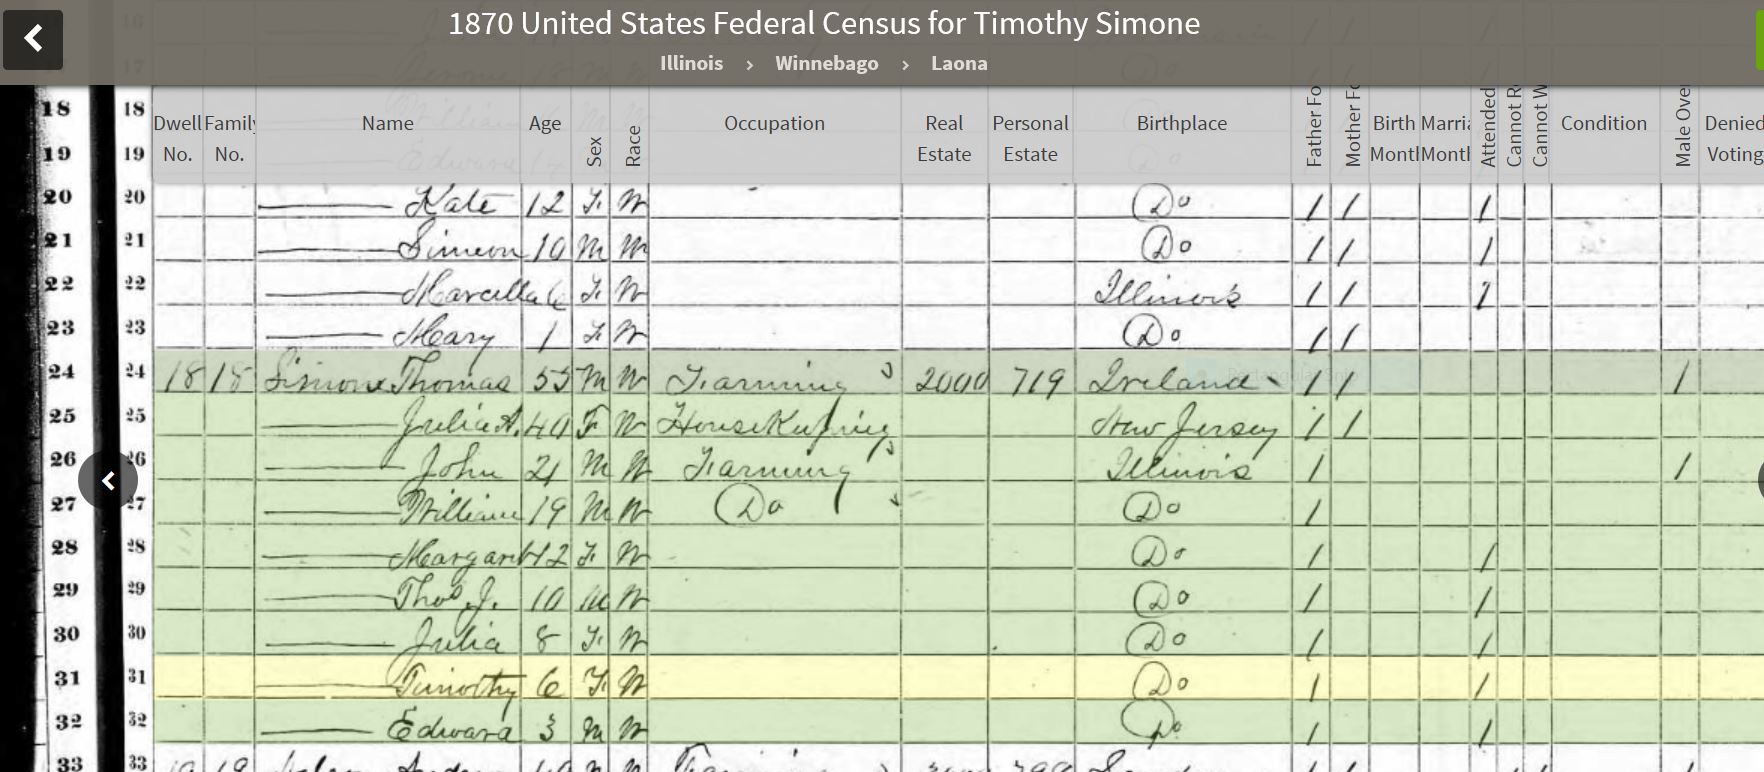 1870 United States Federal Census for Timothy Simone
Illinois › Winnebago › Laona
18 18 Dwell No. Family No. Name Age Sex Race Occupation Real Estate Personal Estate Birthplace Father Fo Mother Fo Birth Month Marri Month Attended Cannot R Cannot W Condition Male Ove Denied Voting
19 19 Edward
20 20 Kate 12 F W Do 1 1 1
21 21 Simeon 10 M W Do 1 1 1
22 22 Marcella 6 F W Illinois 1 1 1
23 23 Mary 1 F W Do 1 1
24 24 18 18 Simone Thomas 55 M W Farming 2000 719 Ireland 1 1 1
25 25 Julia A. 40 F W House Keeping New Jersey 1 1
26 26 John 21 M W Farming Illinois 1 1
27 27 William 19 M W Do Do 1
28 28 Margaret 12 F W Do 1 1
29 29 Thos J. 10 M W Do 1 1
30 30 Julia 8 F W Do 1 1
31 31 Timothy 6 F W Do 1 1
32 32 Edward 3 M W Do 1 1
33 33 19 19